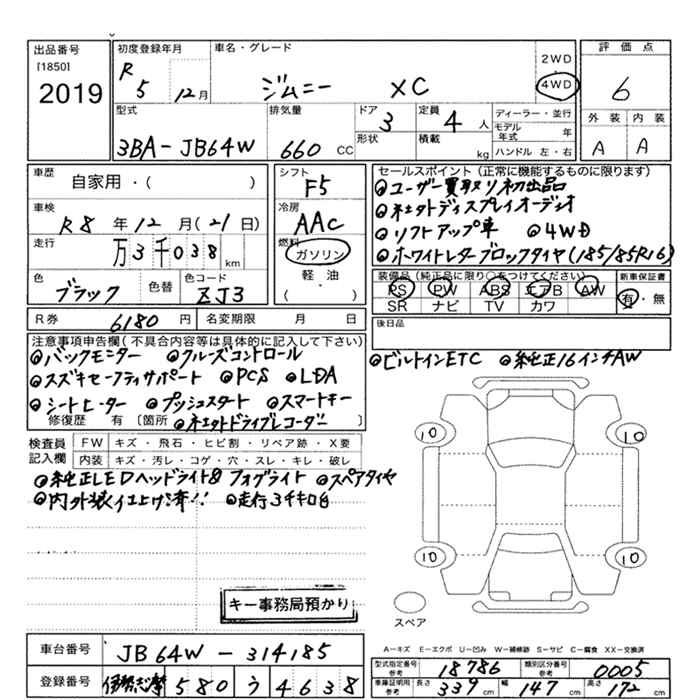 出品番号 初度登録年月 車名・グレード 評価点
[1850] R 5 12月 ジムニー XC 2WD 4WD 6
2019
型式 排気量 ドア 3 定員 4人 ディーラー・並行 外装 内装
3BA-JB64W 660 CC 形状 積載 kg モデル年式 年 A A
ハンドル 左・右
車歴 自家用・( ) シフト F5 セールスポイント(正常に機能するものに限ります)
◎ユーザー買取り初出品
車検 R8年12月(21日) 冷房 AAC ◎社外ディスプレイオーディオ
◎リフトアップ車 ◎4WD
走行 万3千038km 燃料 ガソリン ◎ホワイトレターブロックタイヤ(185/85R16)
軽・油 装備品(純正品に限り○をつけてください) 新車保証書
色 ブラック 色替 色コード ZJ3 ( ) PS PW ABS エアB AW 有・無
SR ナビ TV カワ
R券 6180円 名変期限 月 日 後日品
注意事項申告欄(不具合内容等は具体的に記入して下さい)
◎バックモニター ◎クルーズコントロール ◎ビルトインETC ◎純正16インチAW
◎スズキセーフティサポート ◎PCS ◎LDA
◎シートヒーター ◎プッシュスタート ◎スマートキー
修復歴 有 〔箇所 ◎社外ドライブレコーダー 〕
検査員記入欄 FW キズ・飛石・ヒビ割・リペア跡・X要
内装 キズ・汚レ・コゲ・穴・スレ・キレ・破レ
◎純正LEDヘッドライト&フォグライト ◎スペアタイヤ
◎内外装仕上げ済!! ◎走行3千キロ台
10 10
10 10
スペア
キー事務局預かり
A=キズ E=エクボ U=凹み W=補修跡 S=サビ C=腐食 XX=交換済
車台番号 JB64W-314185
型式指定番号 参考 18786 類別区分番号 参考 0005
登録番号 伊勢志摩 580 う 4638
車庫証明用 参考 長さ 339cm 幅 147cm 高さ 172cm